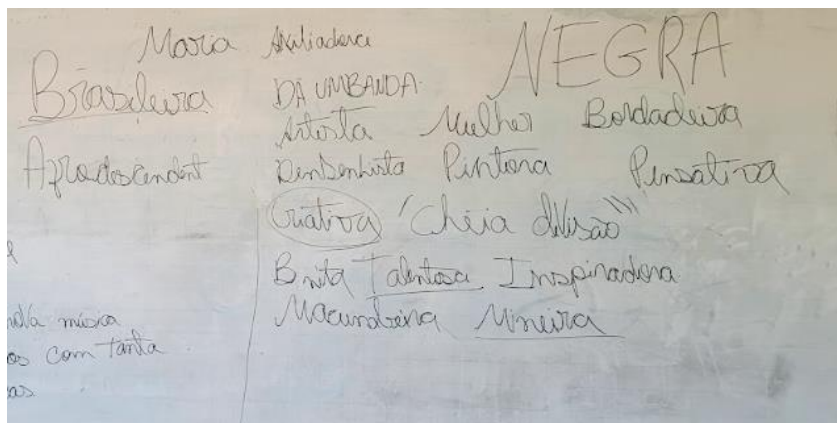 Maria Auxiliadora NEGRA
Brasileira DA UMBANDA
Artista Mulher Bordadeira
Afrodescendent Densenhista Pintora Pensativa
Criativa "Cheia de visão"
Bnita Talentosa Inspiradora
Macumbeira Mineira
música
os com tanta
as